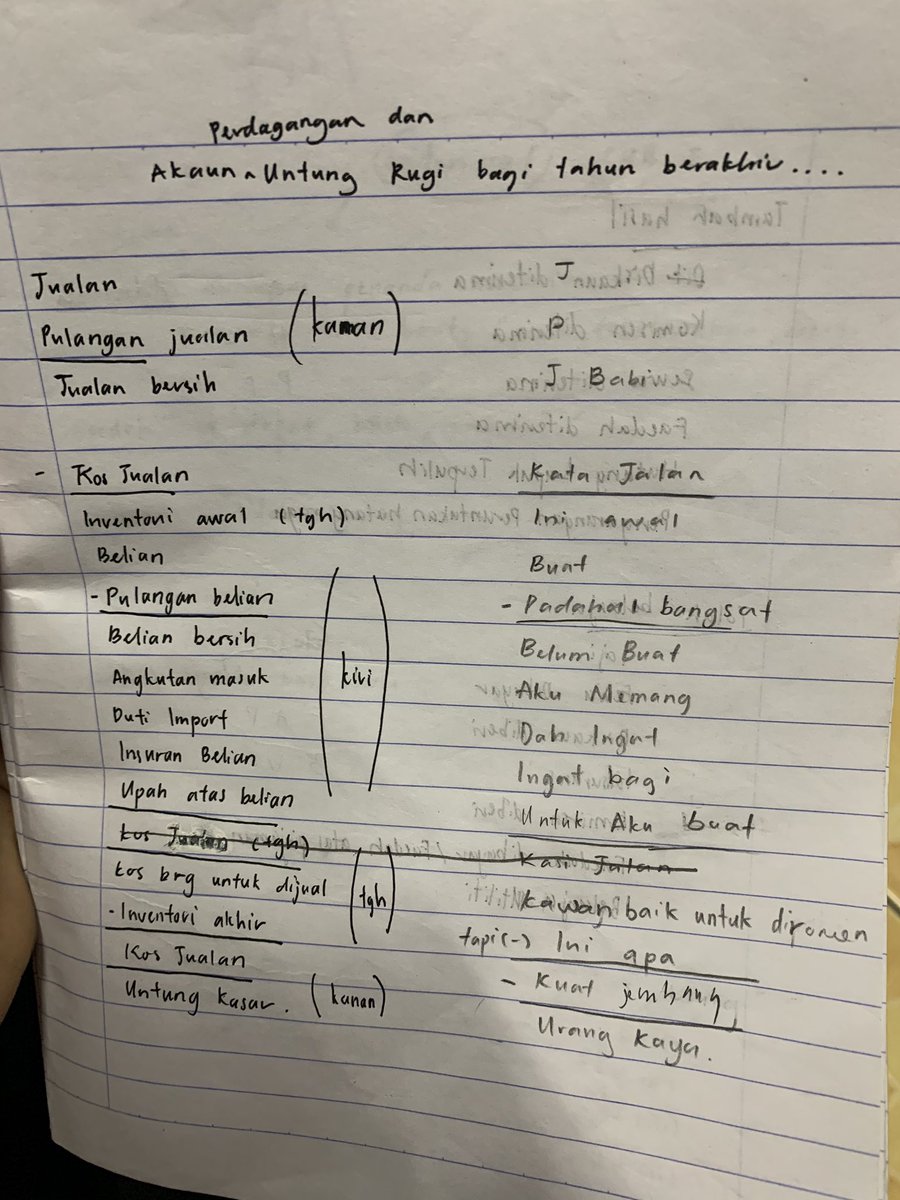 Perdagangan dan
Akaun ^ Untung Rugi bagi tahun berakhir....
Jualan J
Pulangan jualan (kanan) P
Jualan bersih J Babi
- Kos Jualan Kata Jalan
Inventori awal (tgh) Ini awal
Belian Buat
- Pulangan belian - Padahal bangsat
Belian bersih (kiri) Belum Buat
Angkutan masuk Aku Memang
Duti Import Dah Ingat
Insuran Belian Ingat bagi
Upah atas belian Untuk Aku buat
kos Jualan (tgh) Kasi Jalan
kos brg untuk dijual (tgh) kawan baik untuk
- Inventori akhir tapi(-) Ini apa
Kos Jualan - Kuat
Untung kasar. (kanan) Urang kaya.
Tambah hasil
Diskaun diterima
Komisen diterima
Sewa diterima
Faedah diterima